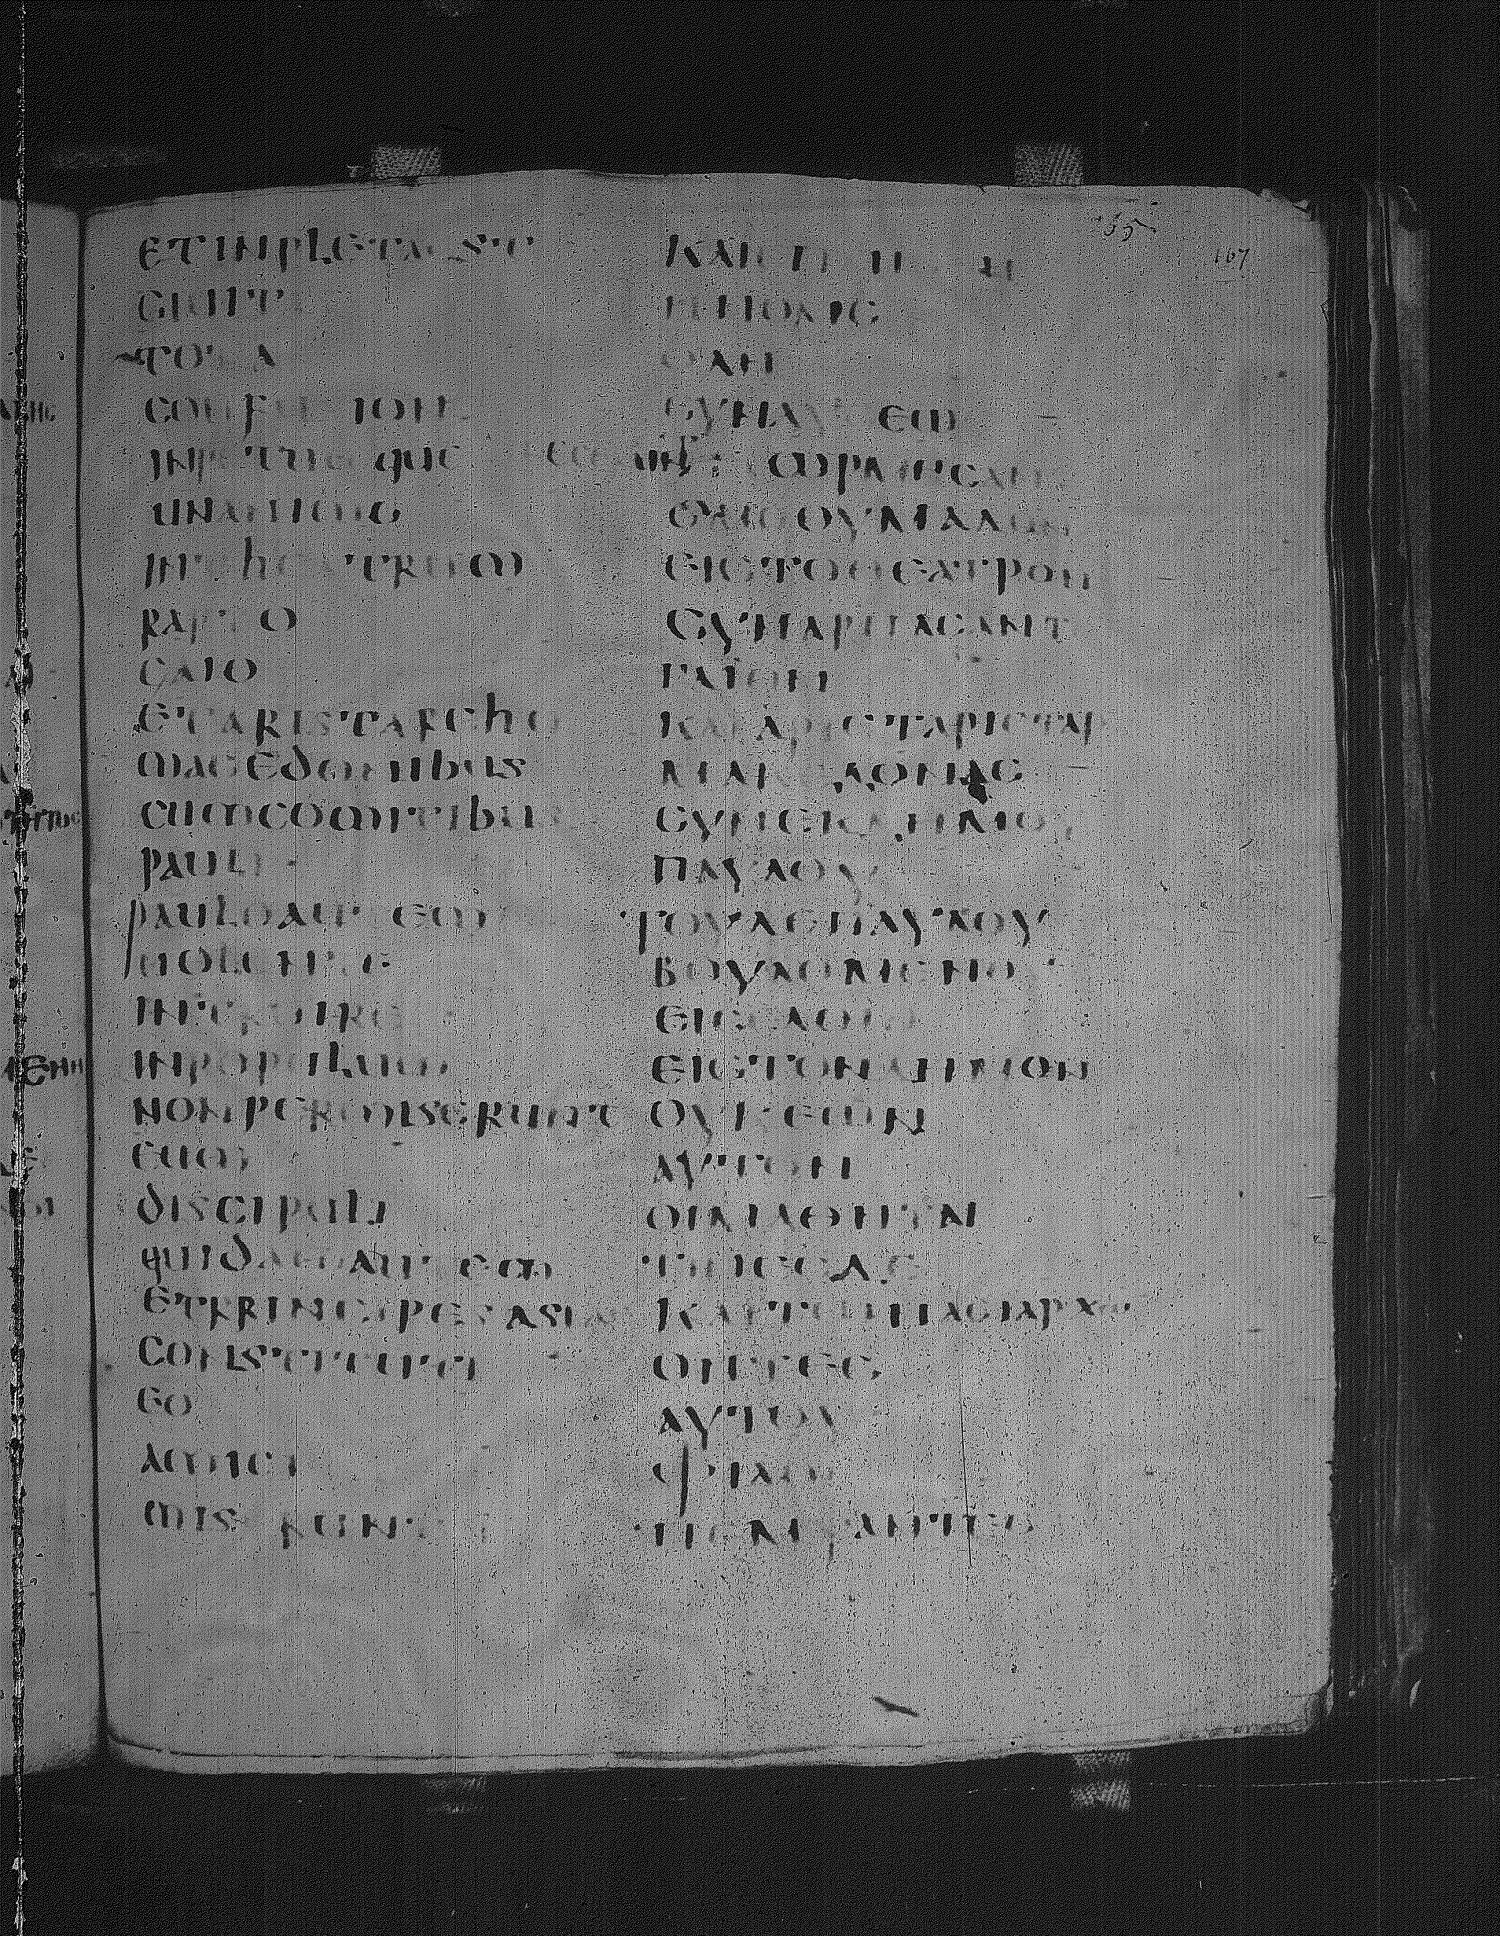 ETIMPLETAEST
CIUIT
TOTA
CONFUSION
IMPETUMQUE
UNANIMES
INTHEATRUM
RAPTO
GAIO
ETARISTARCHO
MACEDONIBUS
CUMCOMITIBUS
PAULI
PAULOAUTEM
UOLENTE
INTROIRE
INPOPULUM
NONPERMISERUNT
EUM
DISCIPULI
QUIDAMAUTEM
ETPRINCIPESASIAE
CONSTITUTI
EO
AMICI
MISERUNT
ΚΑΙ
ΗΠΟΛΙΣ
ΟΛΗ
ΣΥΝΧΥΣΕΩΣ
ΩΡΜΗΣΑΝ
ΟΜΟΘΥΜΑΔΟΝ
ΕΙΣΤΟΘΕΑΤΡΟΝ
ΣΥΝΑΡΠΑΣΑΝΤ
ΓΑΙΟΝ
ΚΑΙΑΡΙΣΤΑΡΙΣΤΑΡ
ΜΑΚΕΔΟΝΑΣ
ΣΥΝΕΚΔΗΜΟΥΣ
ΠΑΥΛΟΥ
ΤΟΥΔΕΠΑΥΛΟΥ
ΒΟΥΛΟΜΕΝΟΥ
ΕΙΣΕΛΘΕΙΝ
ΕΙΣΤΟΝΔΗΜΟΝ
ΟΥΚΕΙΩΝ
ΑΥΤΟΝ
ΟΙΜΑΘΗΤΑΙ
ΤΙΝΕΣΔΕ
ΚΑΙΤΩΝΑΣΙΑΡΧΩΝ
ΟΝΤΕΣ
ΑΥΤΟΥ
ΦΙΛΟΙ
ΠΕΜΨΑΝΤΕΣ
167